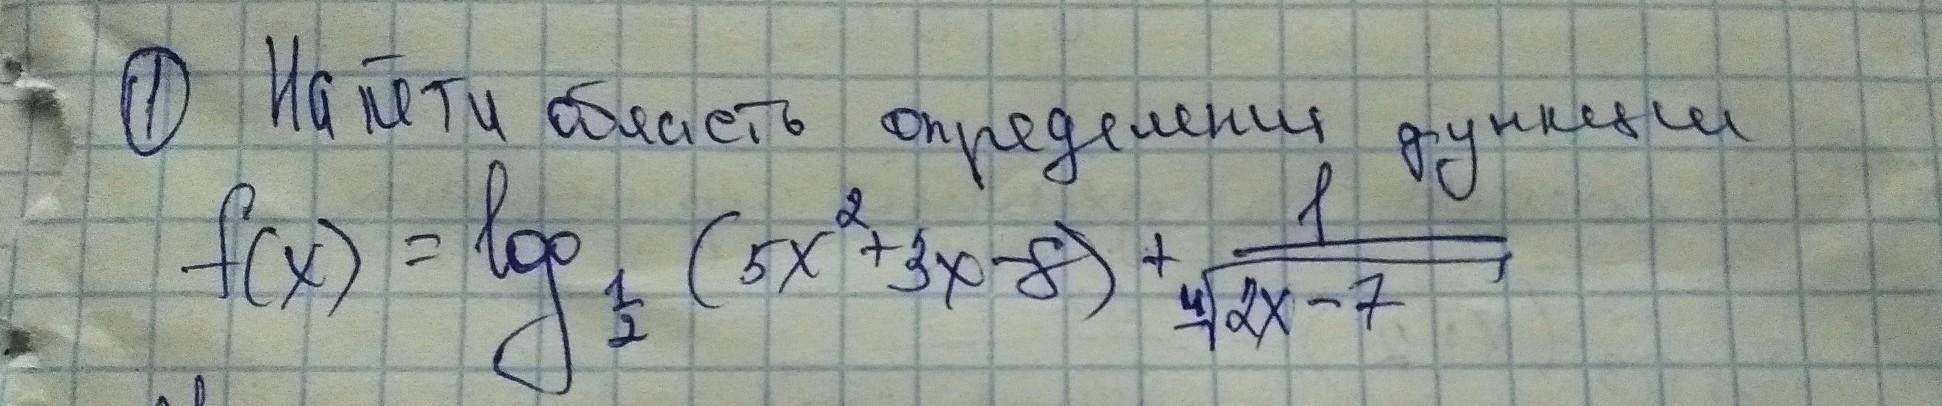 ① Найти область определения функции
f(x) = log_{1/2} (5x² + 3x - 8) + 1/∜(2x - 7)